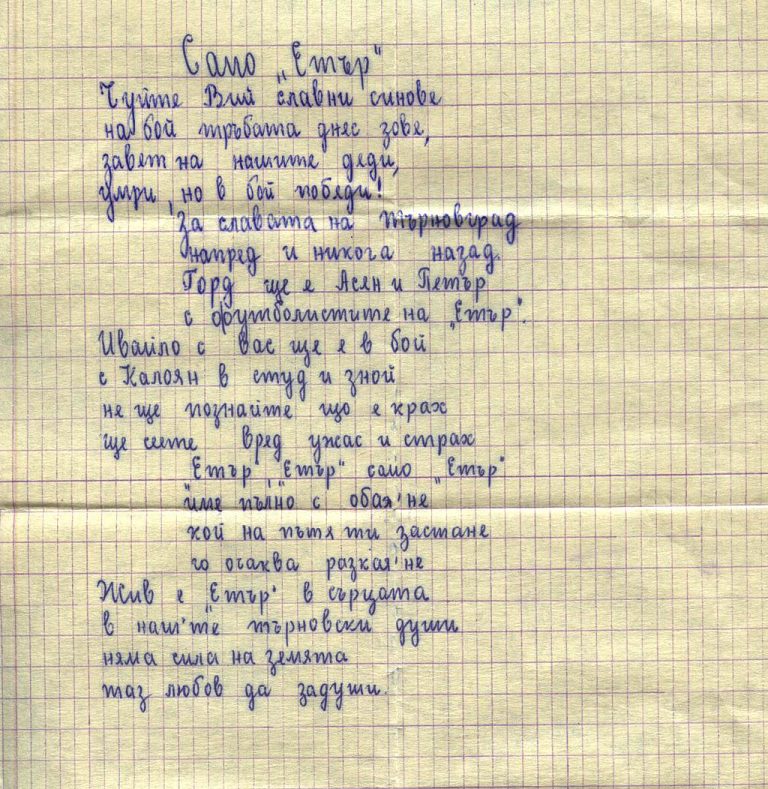 Само „Етър"
Чуйте Вий славни синове
на бой тръбата днес зове,
завет на нашите деди,
умри, но в бой победи!
За славата на Търновград
напред и никога назад.
Горд ще е Асян и Петър
с футболистите на „Етър".
Ивайло с вас ще е в бой
с Калоян в студ и зной
не ще познайте що е крах
ще сеете вред ужас и страх
„Етър", „Етър" само „Етър"
име пълно с обая'не
кой на пътя ти застане
го очаква разкая'не
Жив е „Етър" в сърцата
в наш'те търновски души
няма сила на земята
таз любов да задуши.